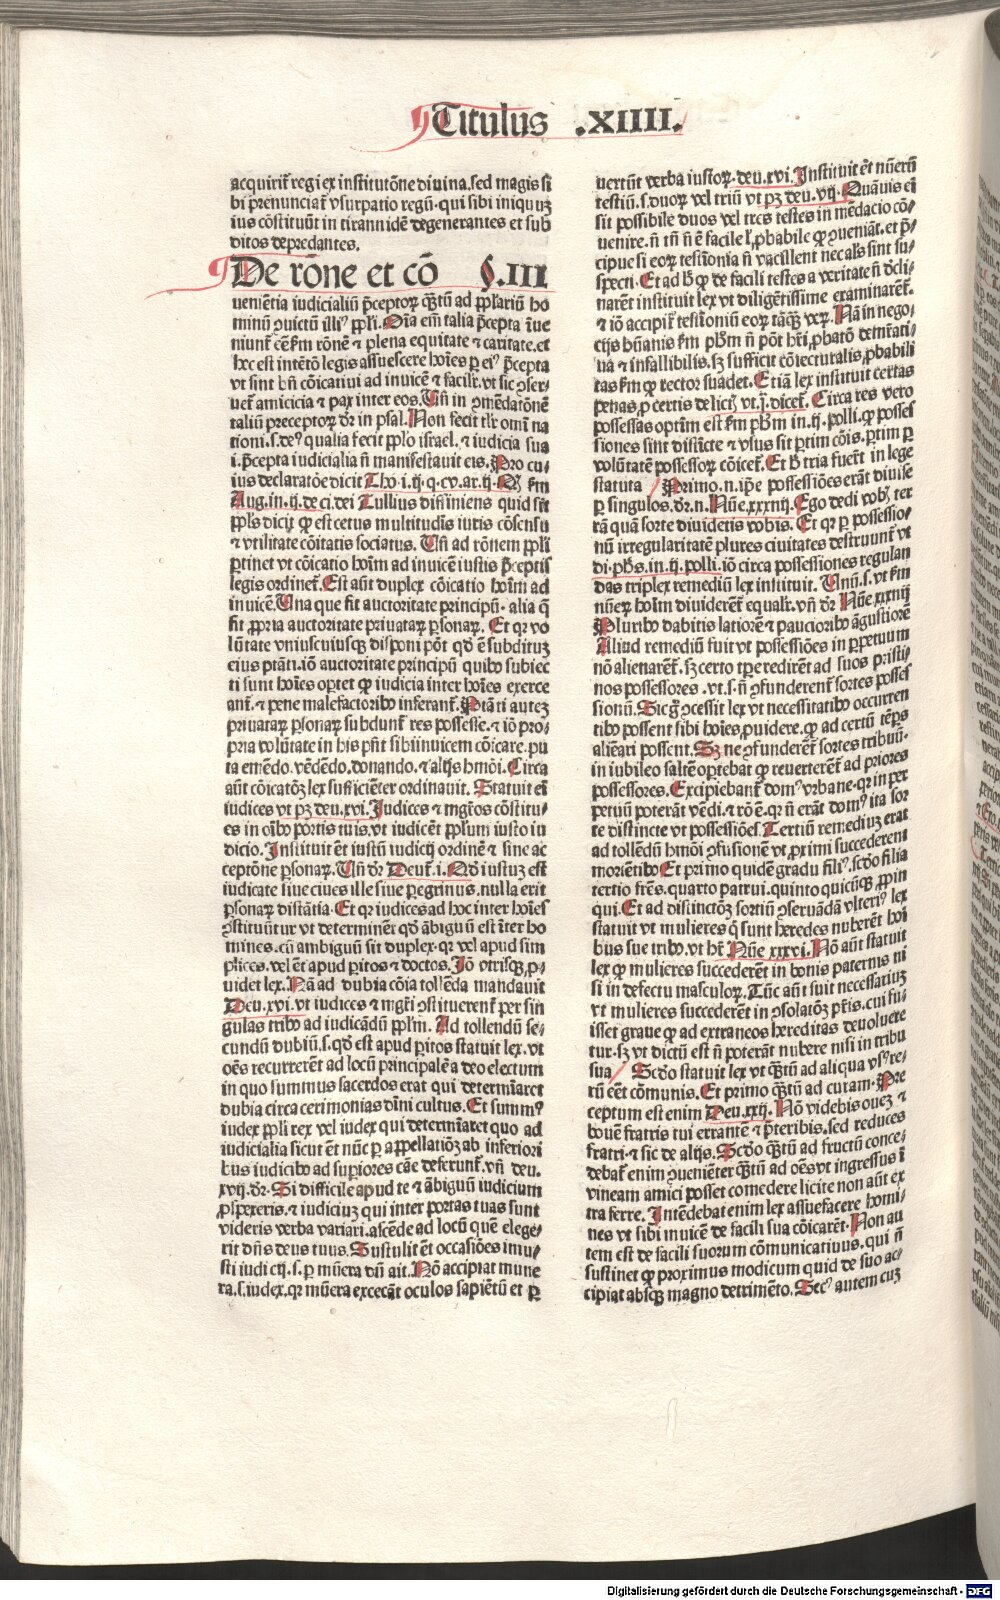 Titulus .XIIII.
acquirit̃ regi ex institutõne diuina. sed magis ſi
bi prenunciat̃ vſurpatio regũ. qui sibi iniquuꝫ
ius cõstituũt in tirannidẽ degenerantes et sub
ditos depredantes.
De rõne et cõ §.III
uenĩetia iudicialiũ p̃ceptoꝝ q̃ꝫtũ ad pp̃lariũ ho
minũ ꝯuictũ illiꝰ pp̃li. Oĩa em̃ talia p̃cepta ĩue
niunt̃ cẽ ẜm rõnẽ ⁊ plena equitate ⁊ caritate. et
hec est intẽtõ legis assuescere hoĩes ꝑ eiꝰ p̃cepta
vt sint bñ cõicatiui ad inuicẽ ⁊ faciłr. vt sic ꝯser-
uet̃ amicicia ⁊ pax inter eos. Uñ in ꝯmẽdatõnẽ
taliũ preceptoꝝ dr̃ in psal. Non fecit tłr omĩ na
tioni. s. deꝰ qualia fecit pp̃lo israel. ⁊ iudicia sua
i. p̃cepta iudicialia ñ manifestauit eis. Pro cu-
ius declaratõe dicit Tho. i. ij. q. cv. ar. ij. Qꝫ ẜm
Aug. in. ij. de ci. dei Tullius diffiniens quid sit
pp̃ls dicij ꝙ est cetus multitudĩs iuris cõsensu
⁊ vtilitate cõitatis sociatus. Uñ ad rõnem pp̃li
ꝑtinet vt cõicatio hoĩm ad inuicẽ iustis p̃ceptis
legis ordinet̃. Est aũt duplex cõicatio hoĩm ad
inuicẽ. Una que fit auctoritate principũ. alia q̃
fit ꝓpria auctoritate priuataꝝ ꝑsonaꝝ. Et qꝛ vo
lũtate vniuscuiusqꝫ disponi põt qd̃ ẽ subdituꝫ
eius ptãti. iõ auctoritate principũ quibꝰ subiec
ti sunt hoĩes oꝑtet ꝙ iudicia inter hoĩes exerce
ant̃. ⁊ pene malefactoribꝰ inferant̃. Ptãti autez
priuataꝝ ꝑsonaꝝ subdunt̃ res possesse. ⁊ iõ pro-
pria volũtate in his pñt sibiinuicem cõicare. pu
ta emẽdo. vẽdẽdo. donando. ⁊ alijs hmõi. Circa
aũt cõicatõꝫ lex sufficiẽter ordinauit. Statuit eĩ
iudices vt pꝫ deu. xvi. Judices ⁊ mgr̃os cõstitu-
es in oĩbꝰ portis tuis. vt iudicẽt pp̃lum iusto iu
dicio. Instituit ẽt iustũ iudicij ordinẽ ⁊ sine ac
ceptõne ꝑsonaꝝ. Uñ dr̃ Deut̃. i. Qd̃ iustuꝫ est
iudicate siue ciues ille siue ꝑegrinus. nulla erit
ꝑsonaꝝ distãtia. Et qꝛ iudices ad hoc inter hoĩes
ꝯstituũtur vt determinẽt qd̃ ãbiguũ est ĩter ho
mines. cũ ambiguũ sit duplex. qꝛ vel apud sim
plices. vel ẽt apud ꝑitos ⁊ doctos. Jõ vtrisqꝫ ꝓ-
uidet lex. Nã ad dubia cõia tollẽda mandauit
Deu. xvi. vt iudices ⁊ mgr̃i ꝯstituerent̃ per sin
gulas tribꝰ ad iudicãdũ pp̃lm. Ad tollendũ se-
cundũ dubiũ. s. qd̃ est apud ꝑitos statuit lex. vt
oẽs recurrerẽt ad locũ principalẽ a deo electum
in quo summus sacerdos erat qui determĩaret
dubia circa cerimonias diuĩ cultus. Et summꝰ
iudex pp̃li rex vel iudex qui determĩaret quo ad
iudicialia sicut ẽt nũc ꝑ appellatiõꝫ ab inferiori
bus iudicibꝰ ad supiores cãe deferunt̃. vñ deu.
xvij. dr̃. Si difficile apud te ⁊ ãbiguũ iudicium
ꝓspexeris. ⁊ iudiciuꝫ qui inter portas tuas sunt
videris verba variari. ascẽde ad locũ quẽ elege-
rit dñs deus tuus. Sustulit ẽt occasiões iniu-
sti iudicij. s. ꝑ mũera dũ ait. Nõ accipiat mune
ra. s. iudex. qꝛ mũera excecãt oculos sapiẽtũ et ꝑ
uertũt verba iustoꝝ. deu. xvi. Instituit ẽt nũerũ
testiũ. s. duoꝝ vel triũ vt pꝫ deu. vij. Quãuis eĩ
sit possibile duos vel tres testes in mẽdacio cõ-
uenire. ñ tñ ñ ẽ facile ł ꝓbabile ꝙ ꝯueniãt. et p̃-
cipue si eoꝝ testĩonia ñ vacillent nec als̃ sint su-
specti. Et ad ħ ꝙ de facili testes a veritate ñ decli-
narẽt instituit lex vt diligẽtissime examinarẽt̃.
⁊ iõ accipit̃ testĩoniũ eoꝝ tãqꝫ veꝝ. Nã in nego-
cijs hũanis ẜm ph̃m ñ põt hr̃i ꝓbatõ demr̃ati-
ua ⁊ infallibilis. sꝫ sufficit cõiecturalis ꝓbabili
tas ẜm ꝙ rector suadet. Etiã lex instituit certas
penas ꝓ certis delictis vt. j. dicet̃. Circa res vero
possessas optim est ẜm ph̃m in. ij. polli. ꝙ posses
siones sint distĩcte ⁊ vsus sit partim cõis. partim ꝑ
volũtatẽ possessoꝝ cõicet̃. Et ħ tria fuerũt in lege
statuta / Primo. n. ip̃e possessiões erãt diuise
ꝑ singulos. dr̃. n. Nũe. xxxiij. Ego dedi vob̃ ter
rã quã sorte diuidetis vobis. Et qꝛ ꝑ possessio-
nũ irregularitatẽ plures ciuitates destruunt̃ vt
di. ph̃s. in. ij. polli. iõ circa possessiones regulan
das triplex remediũ lex instituit. Unũ. s. vt ẜm
nũeꝝ hoĩm diuiderẽt̃ equałr. vñ dr̃ Nũe xxxiij
Pluribꝰ dabitis latiorẽ ⁊ paucioribꝰ ãgustiorẽ
Aliud remediũ fuit vt possessiões in ꝑpetuum
nõ alienarẽt̃. sꝫ certo tꝑe redirẽt ad suos pristi-
nos possessores. vt. s. ñ ꝯfunderent̃ sortes posses
sionũ. Sic ꝯcessit lex vt necessitatibꝰ occurren
tibꝰ possent sibi hoĩes ꝓuidere. ꝙ ad certũ tẽpꝰ
aliẽari possent. Sꝫ ne ꝯfunderẽt̃ sortes tribuũ.
in iubileo saltẽ optebat ꝙ reuerterẽt̃ ad priores
possessores. Excipiebant̃ domꝰ vrbane. qꝛ in per
petuũ poterãt vẽdi. ⁊ rõ ẽ. qꝛ ñ erãt domꝰ ita sor
te distincte vt possessiões. Tertiũ remediuꝫ erat
ad tollẽdũ hmõi ꝯfusionẽ vt ꝓximi succederent
moriẽtibꝰ Et primo quidẽ gradu filiꝰ. scd̃o filia
tertio fr̃es. quarto patrui. quinto quicũqꝫ ꝓpin
qui. Et ad distinctõꝫ sortiũ ꝯseruãdã vlteriꝰ lex
statuit vt mulieres q̃ sunt heredes nuberẽt hoĩ
bus sue tribꝰ. vt hr̃ Nũe xxxvi. Nõ aũt statuit
lex ꝙ mulieres succederẽt in bonis paternis ni
si in defectu masculoꝝ. Tũc aũt fuit necessariuꝫ
vt mulieres succederẽt in ꝯsolatõꝫ pr̃is. cui fu-
isset graue ꝙ ad extraneos hereditas deuolueret
tur. sꝫ vt dictũ est ñ poterãt nubere nisi in tribu
sua / Scd̃o statuit lex vt q̃ꝫtũ ad aliqua vsꝰ re-
rũ eẽt cõmunis. Et primo q̃ꝫtũ ad curam. Pre
ceptum est enim Deu. xxij. Nõ videbis oueꝫ ⁊
bouẽ fratris tui errantẽ ⁊ p̃teribis. sed reduces
fratri ⁊ sic de alijs. Scd̃o q̃ꝫtũ ad fructũ conce-
debat̃ enim ꝯueniẽter q̃ꝫtũ ad oẽs vt ingressus ĩ
vineam amici posset comedere licite non aũt ex
tra ferre. Intẽdebat enim lex assuefacere homi-
nes vt sibi inuicẽ de facili sua cõicarẽt. Non au
tem est de facili suorum cõmunicatiuus. qui ñ
sustinet ꝙ proximus modicum quid de suo ac-
cipiat absqꝫ magno detrimẽto. Secꝰ autem cuꝫ
Digitalisierung gefördert durch die Deutsche Forschungsgemeinschaft - DFG